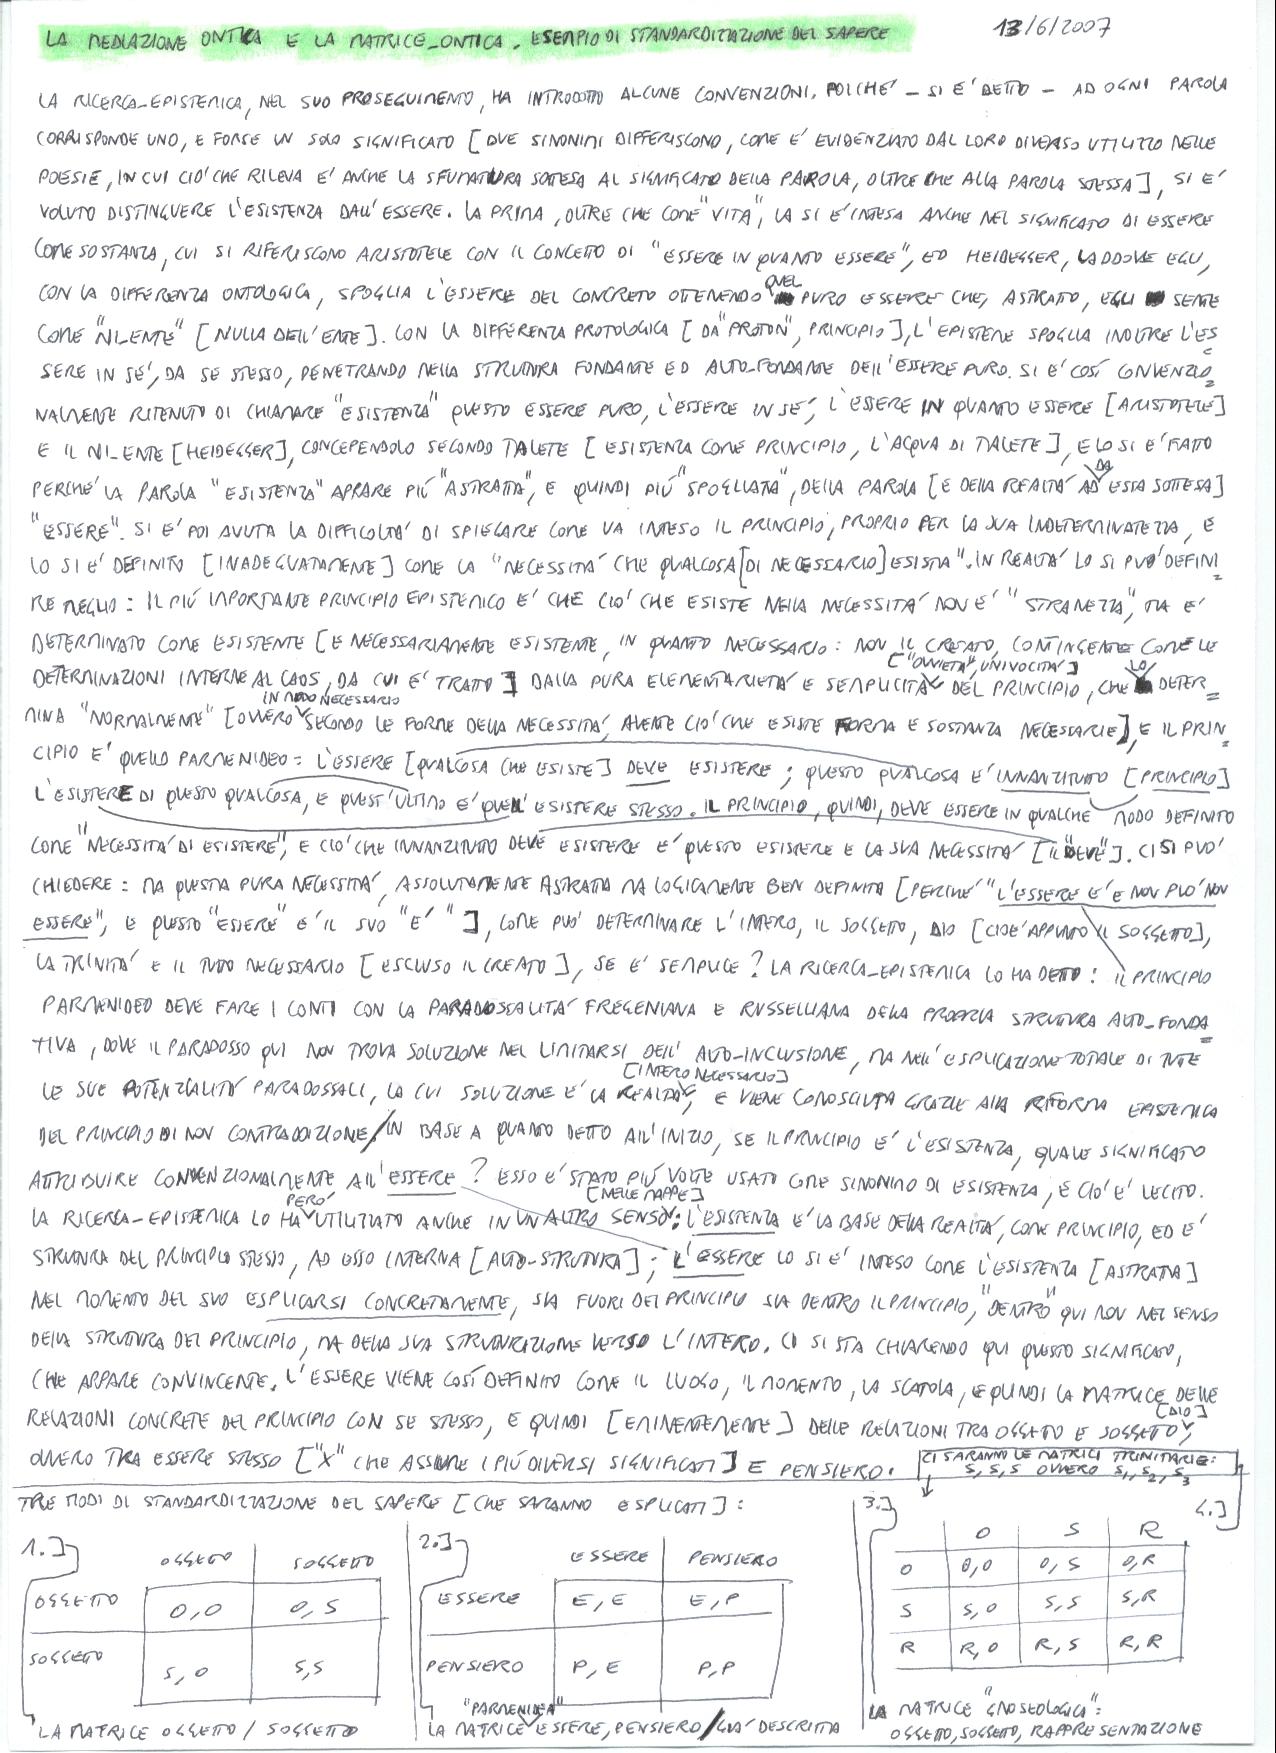 LA MEDIAZIONE ONTICA E LA MATRICE_ONTICA. ESEMPIO DI STANDARDIZZAZIONE DEL SAPERE 13/6/2007
LA RICERCA_EPISTEMICA, NEL SUO PROSEGUIMENTO, HA INTRODOTTO ALCUNE CONVENZIONI. POICHE' – SI E' DETTO – AD OGNI PAROLA
CORRISPONDE UNO, E FORSE UN SOLO SIGNIFICATO [DUE SINONIMI DIFFERISCONO, COME E' EVIDENZIATO DAL LORO DIVERSO UTILIZZO NELLE
POESIE, IN CUI CIO' CHE RILEVA E' ANCHE LA SFUMATURA SOTTESA AL SIGNIFICATO DELLA PAROLA, OLTRE CHE ALLA PAROLA STESSA], SI E'
VOLUTO DISTINGUERE L'ESISTENZA DALL'ESSERE. LA PRIMA, OLTRE CHE COME "VITA", LA SI E' INTESA ANCHE NEL SIGNIFICATO DI ESSERE
COME SOSTANZA, CUI SI RIFERISCONO ARISTOTELE CON IL CONCETTO DI "ESSERE IN QUANTO ESSERE", ED HEIDEGGER, LADDOVE EGLI,
CON LA DIFFERENZA ONTOLOGICA, SPOGLIA L'ESSERE DEL CONCRETO OTTENENDO QUEL PURO ESSERE CHE, ASTRATO, EGLI SENTE
COME "NI_ENTE" [NULLA DELL'ENTE]. CON LA DIFFERENZA PROTOLOGICA [DA "PROTON", PRINCIPIO], L'EPISTEME SPOGLIA INOLTRE L'ES
SERE IN SE', DA SE STESSO, PENETRANDO NELLA STRUTTURA FONDANTE ED AUTO_FONDANTE DELL'ESSERE PURO. SI E' COSÍ CONVENZIO
NALMENTE RITENUTO DI CHIAMARE "ESISTENZA" QUESTO ESSERE PURO, L'ESSERE IN SE', L'ESSERE IN QUANTO ESSERE [ARISTOTELE]
E IL NI_ENTE [HEIDEGGER], CONCEPENDOLO SECONDO TALETE [ESISTENZA COME PRINCIPIO, L'ACQUA DI TALETE], E LO SI E' FATTO
PERCHE' LA PAROLA "ESISTENZA" APPARE PIÚ "ASTRATTA", E QUINDI PIÚ "SPOGLIATA", DELLA PAROLA [E DELLA REALTÀ DA ESSA SOTTESA]
"ESSERE". SI E' POI AVUTA LA DIFFICOLTA' DI SPIEGARE COME VA INTESO IL PRINCIPIO, PROPRIO PER LA SUA INDETERMINATEZZA, E
LO SI E' DEFINITO [INADEGUATAMENTE] COME LA "NECESSITA' CHE QUALCOSA [DI NECESSARIO] ESISTA". IN REALTA' LO SI PUO' DEFINI
RE MEGLIO: IL PIÚ IMPORTANTE PRINCIPIO EPISTEMICO E' CHE CIO' CHE ESISTE NELLA NECESSITA' NON E' "STRANEZZA", MA E'
DETERMINATO COME ESISTENTE [E NECESSARIAMENTE ESISTENTE, IN QUANTO NECESSARIO: NON IL CREATO, CONTINGENTE COME LE
DETERMINAZIONI INTERNE AL CAOS, DA CUI E' TRATTO] DALLA PURA ELEMENTARIETA' E SEMPLICITA' ["OVVIETA'", UNIVOCITA'] DEL PRINCIPIO, CHE LO DETER
MINA "NORMALMENTE" [OVVERO IN MODO NECESSARIO SECONDO LE FORME DELLA NECESSITA', AVENTE CIO' CHE ESISTE FORMA E SOSTANZA NECESSARIE], E IL PRIN
CIPIO E' QUELLO PARMENIDEO: L'ESSERE [QUALCOSA CHE ESISTE] DEVE ESISTERE; QUESTO QUALCOSA E' INNANZITUTTO [PRINCIPIO]
L'ESISTERE DI QUESTO QUALCOSA, E QUEST'ULTIMO E' QUELL'ESISTERE STESSO. IL PRINCIPIO, QUINDI, DEVE ESSERE IN QUALCHE MODO DEFINITO
COME "NECESSITA' DI ESISTERE", E CIO' CHE INNANZITUTTO DEVE ESISTERE E' QUESTO ESISTERE E LA SUA NECESSITA' [IL "DEVE"]. CI SI PUO'
CHIEDERE: MA QUESTA PURA NECESSITA', ASSOLUTAMENTE ASTRATTA MA LOGICAMENTE BEN DEFINITA [PERCHE' "L'ESSERE E' E NON PUO' NON
ESSERE", E QUESTO "ESSERE" E' IL SUO "E'"], COME PUO' DETERMINARE L'INTERO, IL SOGGETTO, DIO [CIOE' APPUNTO IL SOGGETTO],
LA TRINITA' E IL TUTTO NECESSARIO [ESCLUSO IL CREATO], SE E' SEMPLICE? LA RICERCA_EPISTEMICA LO HA DETTO: IL PRINCIPIO
PARMENIDEO DEVE FARE I CONTI CON LA PARADOSSALITA' FREGENIANA E RUSSELLIANA DELLA PROPRIA STRUTTURA AUTO_FONDA
TIVA, DOVE IL PARADOSSO QUI NON TROVA SOLUZIONE NEL LIMITARSI DELL'AUTO-INCLUSIONE, MA NELL'ESPLICAZIONE TOTALE DI TUTTE
LE SUE POTENZIALITA' PARADOSSALI, LA CUI SOLUZIONE E' LA REALTA' [INTERO NECESSARIO], E VIENE CONOSCIUTA GRAZIE ALLA RIFORMA EPISTEMICA
DEL PRINCIPIO DI NON CONTRADDIZIONE/IN BASE A QUANTO DETTO ALL'INIZIO, SE IL PRINCIPIO E' L'ESISTENZA, QUALE SIGNIFICATO
ATTRIBUIRE CONVENZIONALMENTE ALL'ESSERE? ESSO E' STATO PIÚ VOLTE USATO COME SINONIMO DI ESISTENZA, E CIO' E' LECITO.
LA RICERCA_EPISTEMICA LO HA PERO' UTILIZZATO ANCHE IN UN ALTRO SENSO [NELLE MAPPE]: L'ESISTENZA E' LA BASE DELLA REALTA', COME PRINCIPIO, ED E'
STRUTTURA DEL PRINCIPIO STESSO, AD ESSO INTERNA [AUTO_STRUTTURA]; L'ESSERE LO SI E' INTESO COME L'ESISTENZA [ASTRATTA]
NEL MOMENTO DEL SUO ESPLICARSI CONCRETAMENTE, SIA FUORI DEL PRINCIPIO SIA DENTRO IL PRINCIPIO, "DENTRO" QUI NON NEL SENSO
DELLA STRUTTURA DEL PRINCIPIO, MA DELLA SUA STRUTTURAZIONE VERSO L'INTERO. CI SI STA CHIARENDO QUI QUESTO SIGNIFICATO,
CHE APPARE CONVINCENTE. L'ESSERE VIENE COSÍ DEFINITO COME IL LUOGO, IL MOMENTO, LA SCATOLA, E QUINDI LA MATRICE DELLE
RELAZIONI CONCRETE DEL PRINCIPIO CON SE STESSO, E QUINDI [EMINENTEMENTE] DELLE RELAZIONI TRA OGGETTO E SOGGETTO [DIO],
OVVERO TRA ESSERE STESSO ["X" CHE ASSUME I PIÚ DIVERSI SIGNIFICATI] E PENSIERO.
CI SARANNO LE MATRICI TRINITARIE:
S, S, S OVVERO S1, S2, S3
TRE MODI DI STANDARDIZZAZIONE DEL SAPERE [CHE SARANNO ESPLICATI]:
1.]
OGGETTO SOGGETTO
OGGETTO O,O O,S
SOGGETTO S,O S,S
LA MATRICE OGGETTO / SOGGETTO
2.]
ESSERE PENSIERO
ESSERE E,E E,P
PENSIERO P,E P,P
LA MATRICE "PARMENIDEA" ESSERE, PENSIERO/GIA' DESCRITTA
3.] 4.]
O S R
O O,O O,S O,R
S S,O S,S S,R
R R,O R,S R,R
LA MATRICE "GNOSEOLOGICA":
OGGETTO, SOGGETTO, RAPPRESENTAZIONE